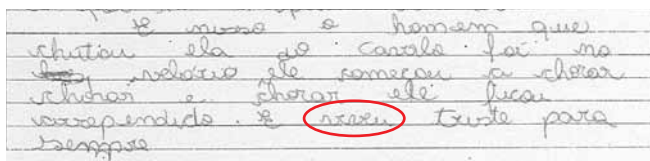 E nisso o homem que
chutou ela do cavalo foi no
velorio ele começou a chorar
chorar e chorar ele ficou
arrependido. E viveu triste para
sempre